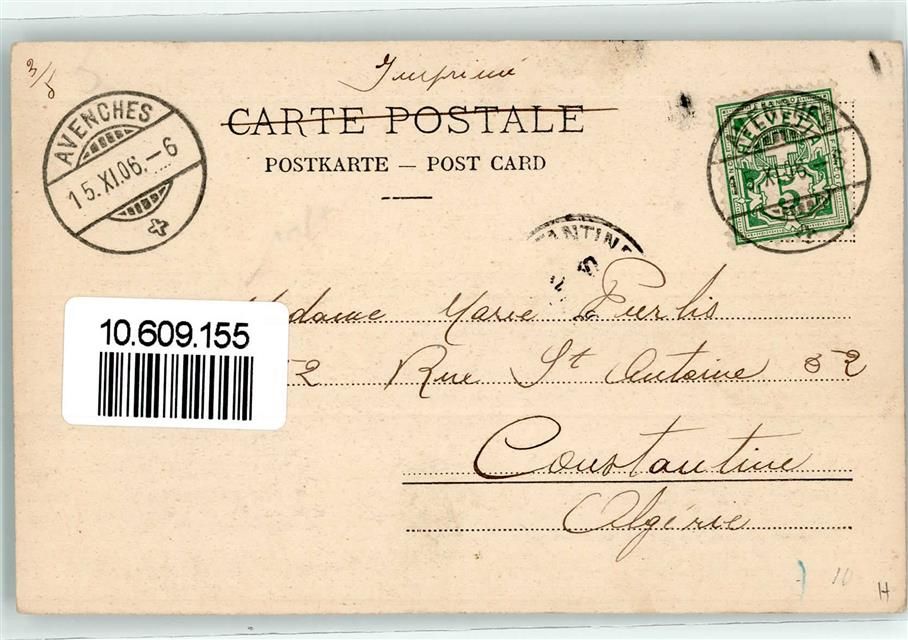 3/5
Imprimé
CARTE POSTALE
POSTKARTE — POST CARD
AVENCHES
15.XI.06.–6
HELVETIA
15.XI.06.–6
5
10.609.155
Madame Marie
52 Rue St Antoine 52
Constantine
Algérie
10
H